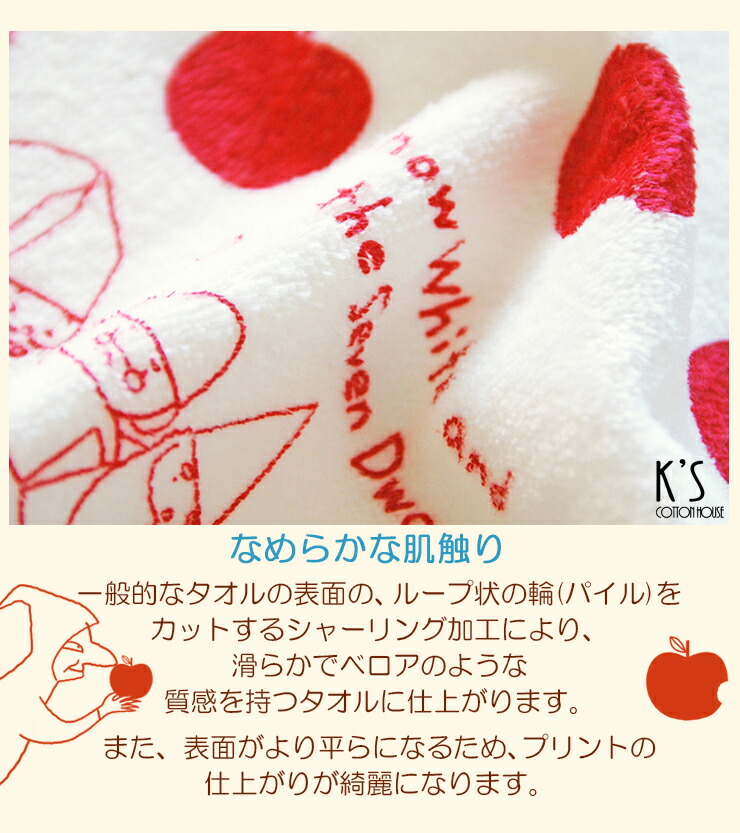 now Whit and
the Seven Dwa
K'S
COTTON HOUSE
なめらかな肌触り
一般的なタオルの表面の、ループ状の輪(パイル)を
カットするシャーリング加工により、
滑らかでベロアのような
質感を持つタオルに仕上がります。
また、表面がより平らになるため、プリントの
仕上がりが綺麗になります。